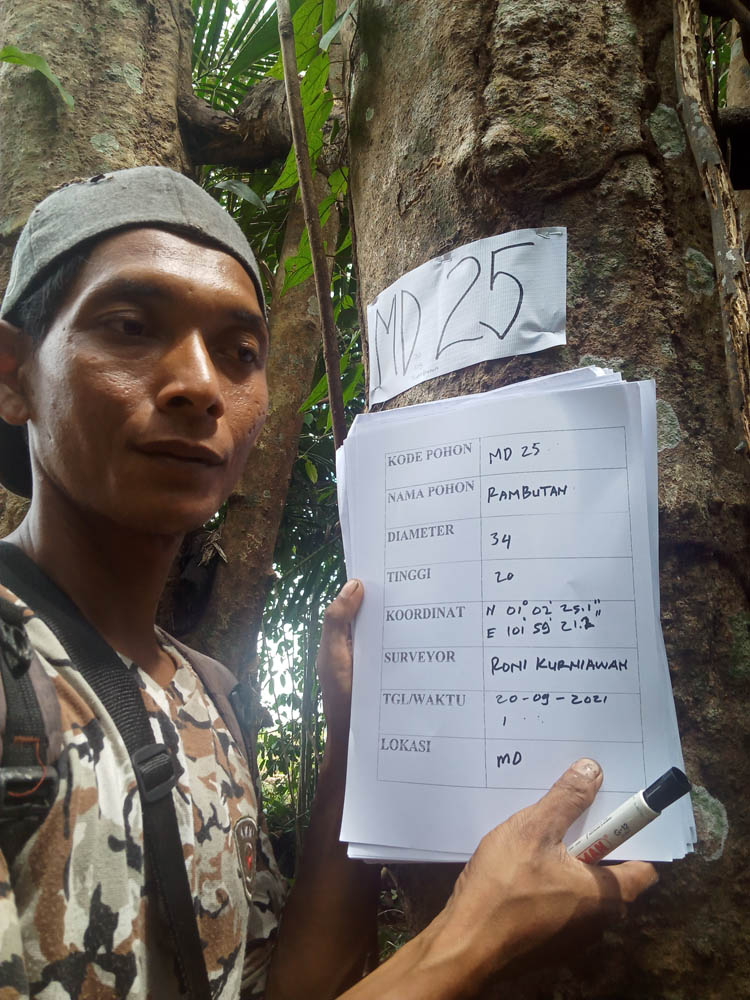 MD 25
KODE POHON MD 25
NAMA POHON RAMBUTAN
DIAMETER 34
TINGGI 20
KOORDINAT N 01° 02' 25.1"
E 101° 59' 21.2"
SURVEYOR RONI KURNIAWAN
TGL/WAKTU 20-09-2021
LOKASI MD